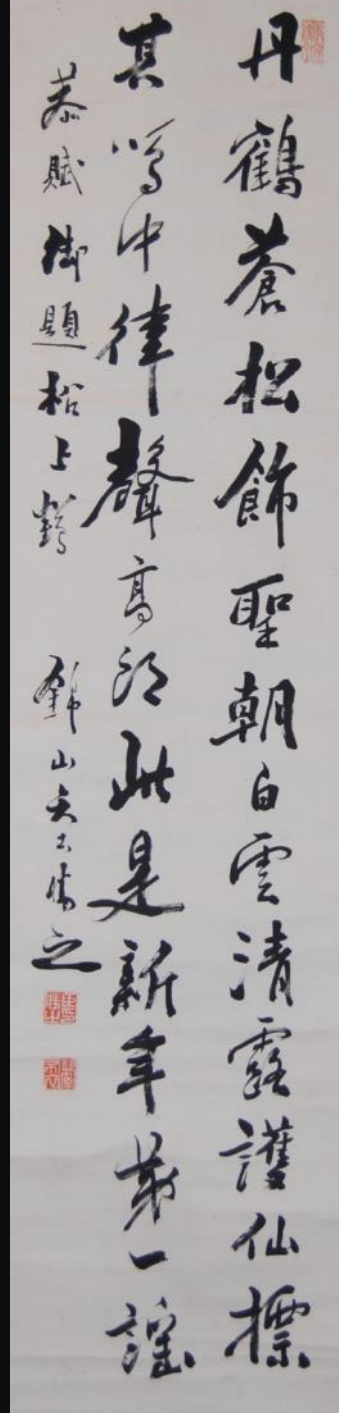 丹鶴蒼松飾聖朝白雲清露護仙標
其鳴中律聲高朗此是新年第一謡
恭賦御題松上鶴 錦山矢土勝之